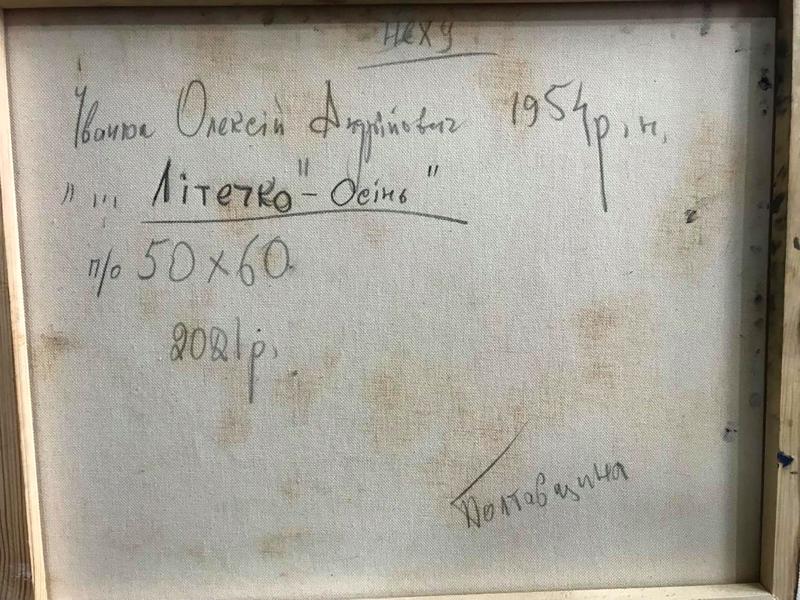 НСХУ
Іванюк Олексій Андрійович 1954 р. н.
" Літечко" - Осінь "
п/о 50 х 60.
2021 р.
Полтавщина